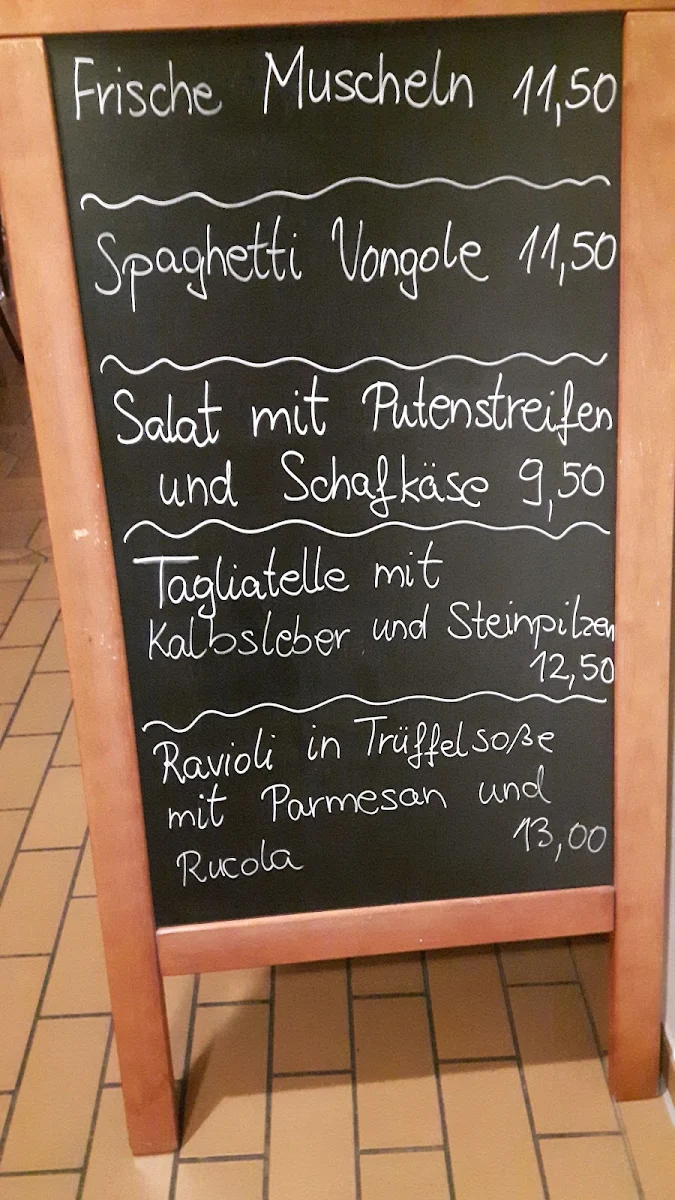 Frische Muscheln 11,50
Spaghetti Vongole 11,50
Salat mit Putenstreifen
und Schafkäse 9,50
Tagliatelle mit
Kalbsleber und Steinpilzen
12,50
Ravioli in Trüffelsoße
mit Parmesan und
Rucola 13,00